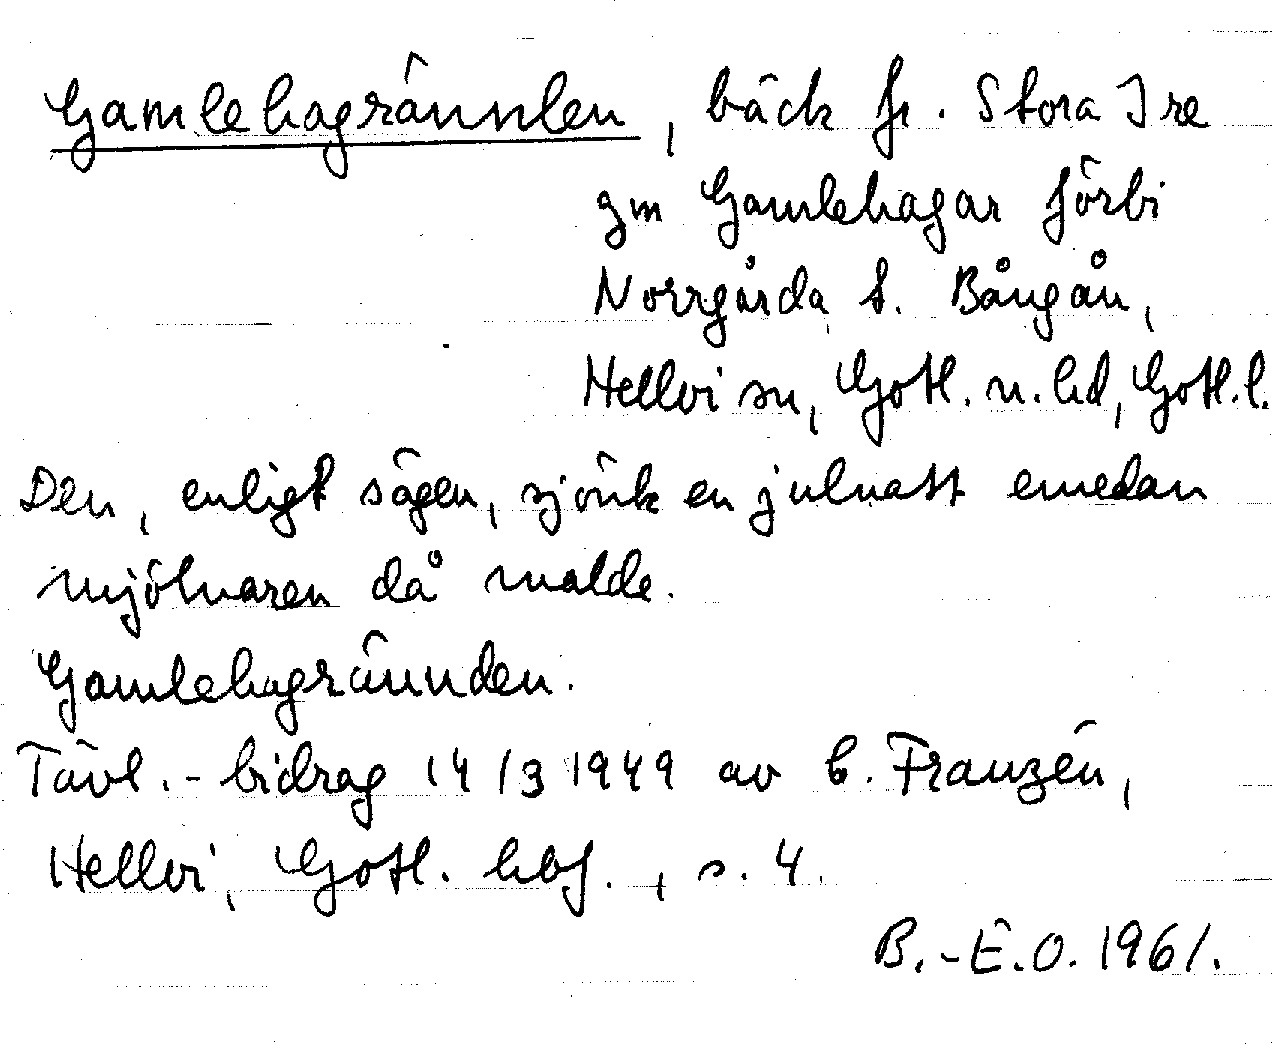 Gamlehagrännlen, bäck fr. Stora Ire
gm Gamlehagar förbi
Norrgårda t. Bångån,
Hellvi sn, Gotl. n. hd, Gotl. l.
Den, enligt sägen, sjönk en julnatt emedan
mjölnaren då malde.
Gamlehagrännden.
Tävl.-bidrag 14/3 1949 av B. Franzén,
Hellvi, Gotl. hbf., s. 4.
B.-E.O. 1961.